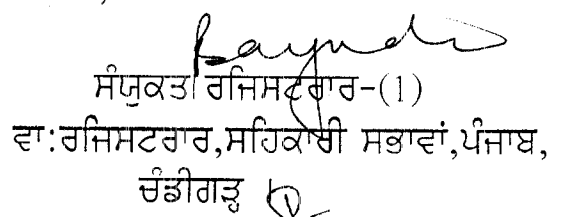 ਸੰਯੁਕਤ ਰਜਿਸਟਰਾਰ-(1)
ਵਾ:ਰਜਿਸਟਰਾਰ,ਸਹਿਕਾਰੀ ਸਭਾਵਾਂ,ਪੰਜਾਬ,
ਚੰਡੀਗੜ੍ਹ